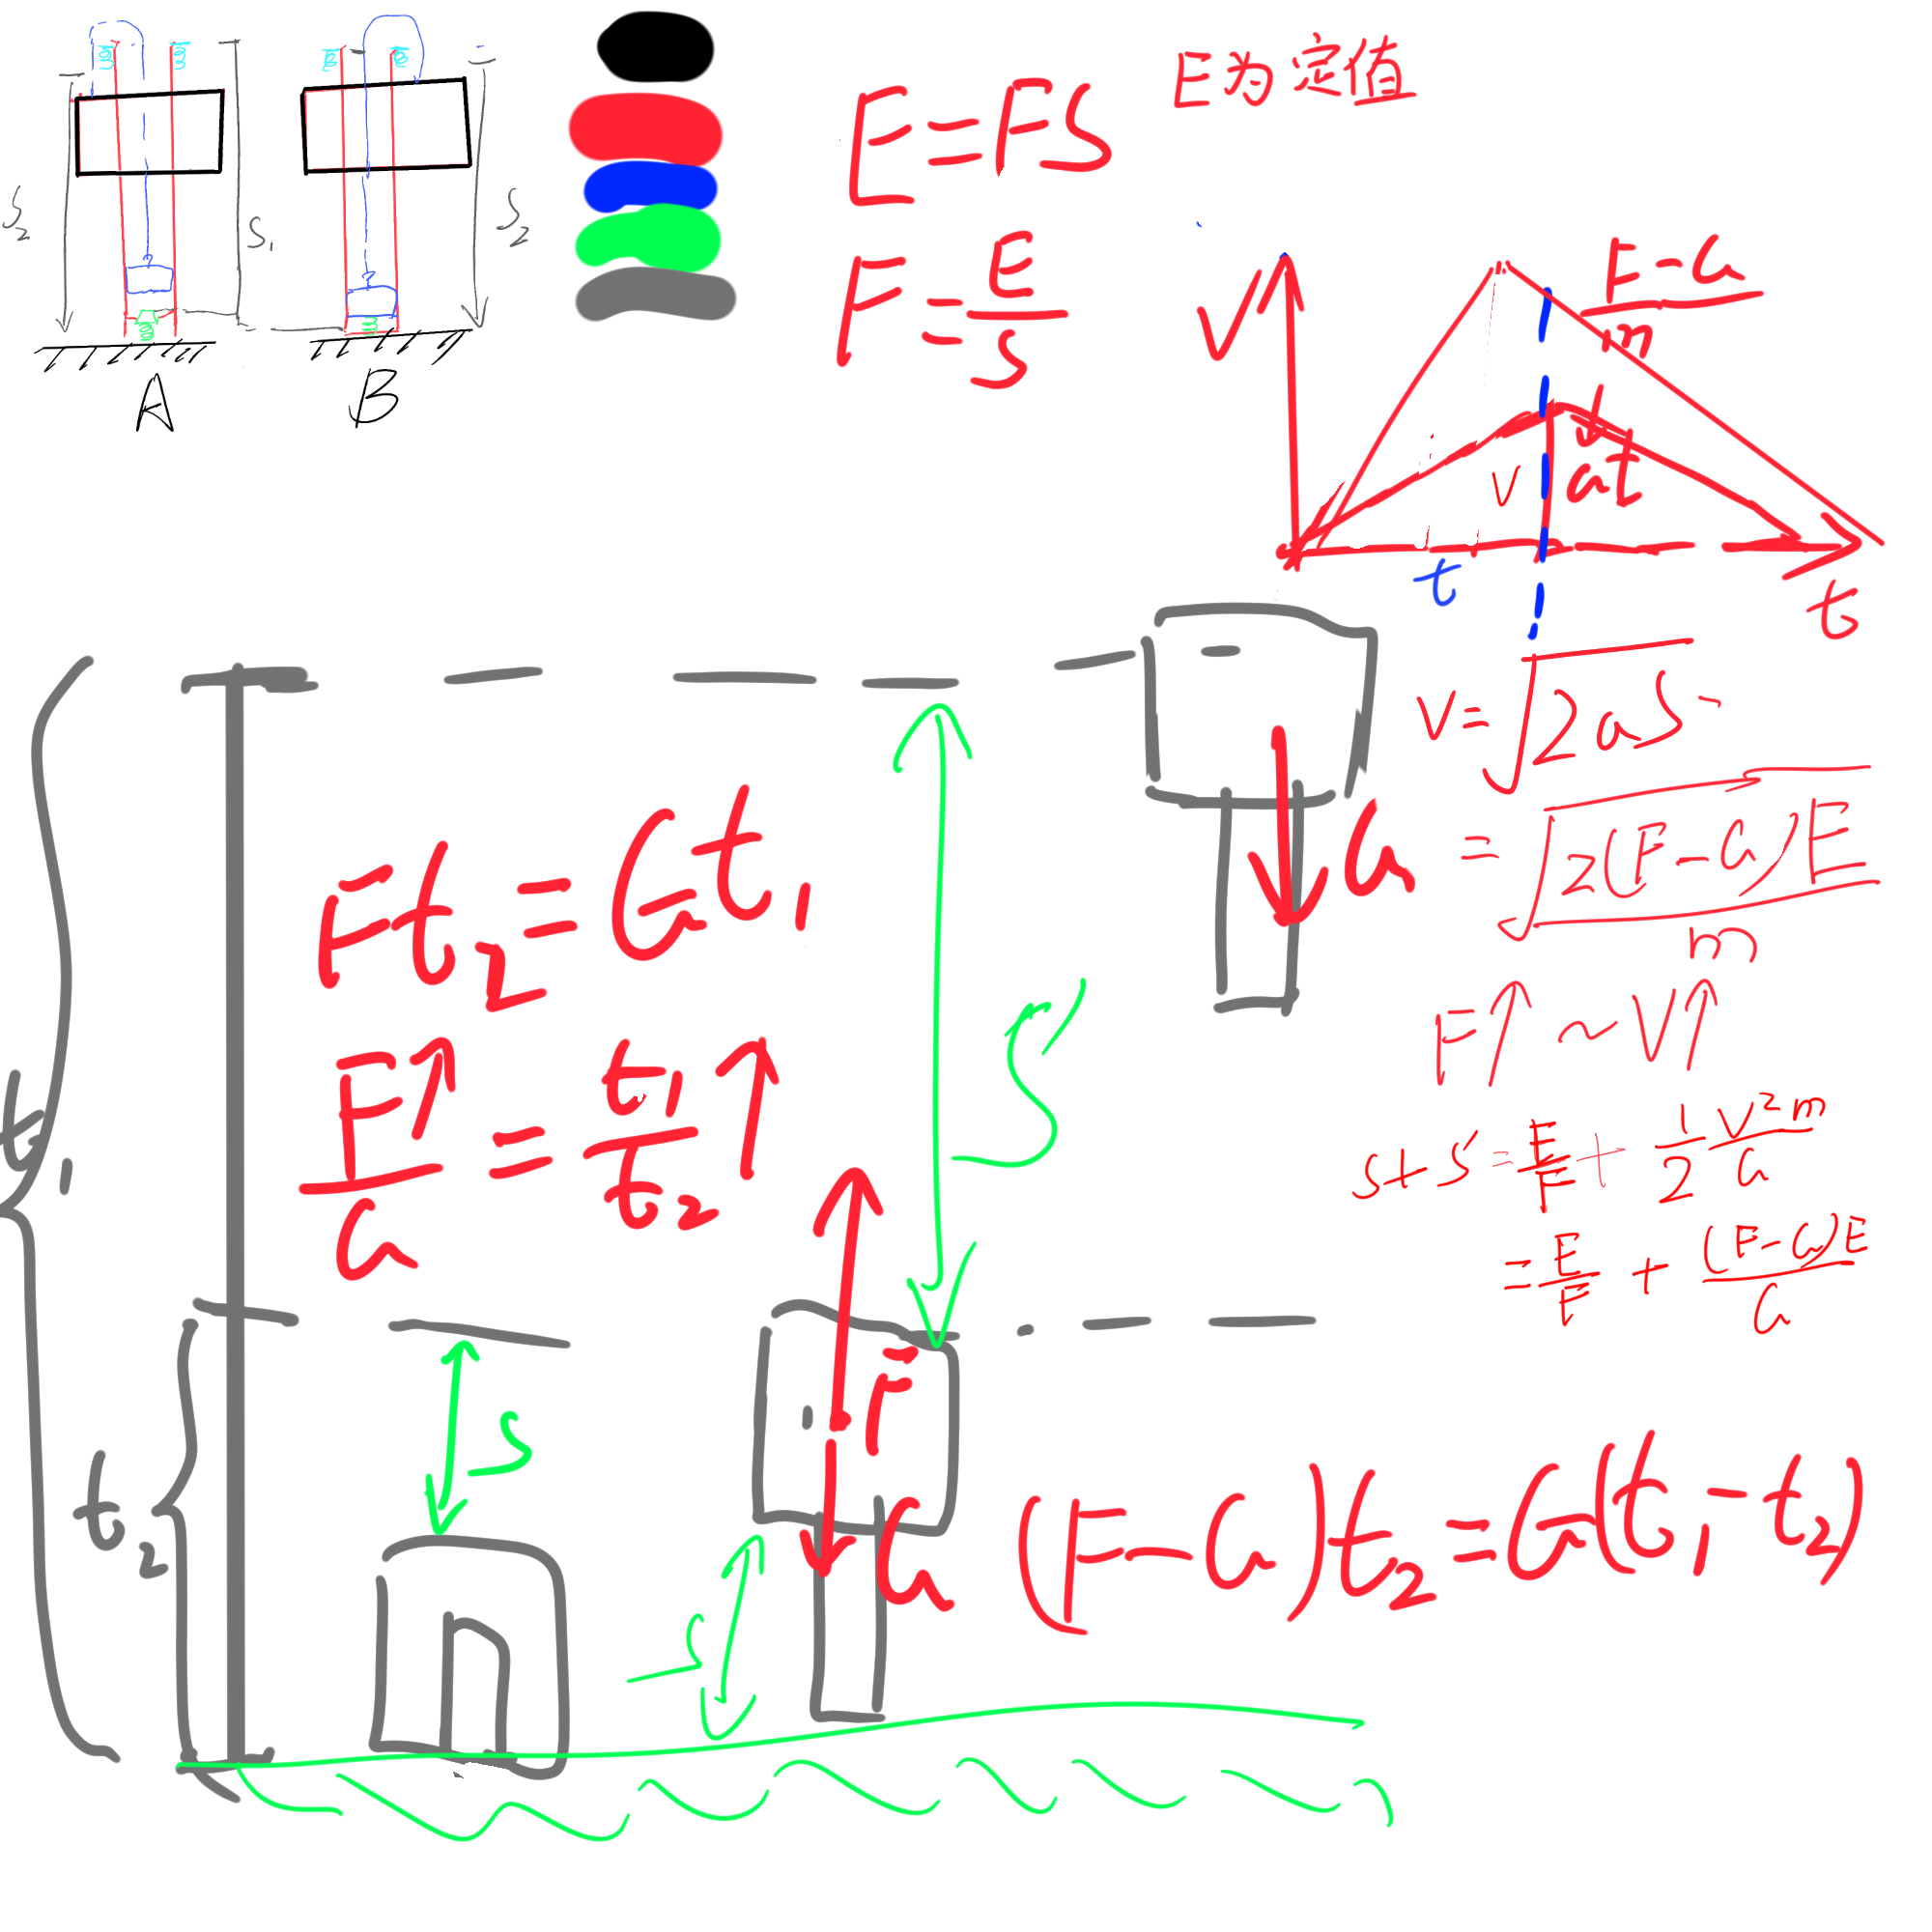 S₂
S₁
S₂
A
B
E=FS
E为定值
F=E/S
V
F-G/m
V
at
t
t
V=√2aS
=√2(F-G)E/m
F↑~V↑
S+S'=E/F+1/2 V²m/G
=E/F+(F-G)E/G
Ft₂=Gt₁
F↑/G=t₁/t₂↑
G
S'
t₁
t₂
S
F
G
S
(F-G)t₂=G(t₁-t₂)